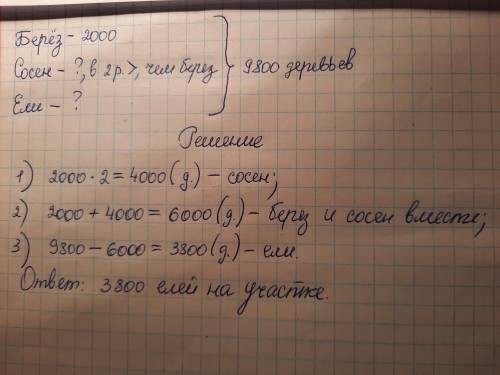 Берёз - 2000
Сосен - ?, в 2 р. >, чем берез } 9800 деревьев
Ели - ?
Решение
1) 2000 · 2 = 4000 (д.) - сосен;
2) 2000 + 4000 = 6000 (д.) - берез и сосен вместе;
3) 9800 - 6000 = 3800 (д.) - ели.
Ответ: 3800 елей на участке.